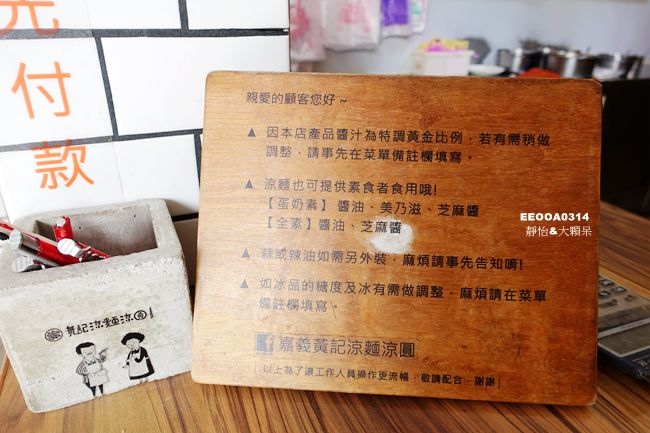 先付款
親愛的顧客您好~
▲ 因本店產品醬汁為特調黃金比例，若有需稍做
調整，請事先在菜單備註欄填寫。
▲ 涼麵也可提供素食者食用哦!
【蛋奶素】 醬油、美乃滋、芝麻醬
【全素】醬油、芝麻醬
▲ 蒜或辣油如需另外裝，麻煩請事先告知唷!
▲ 如冰品的糖度及冰有需做調整，麻煩請在菜單
備註欄填寫。
f 嘉義黃記涼麵涼圓
以上為了讓工作人員操作更流暢，敬請配合，謝謝
黃記涼麵涼圓
EEOOA0314
靜怡&大顆呆